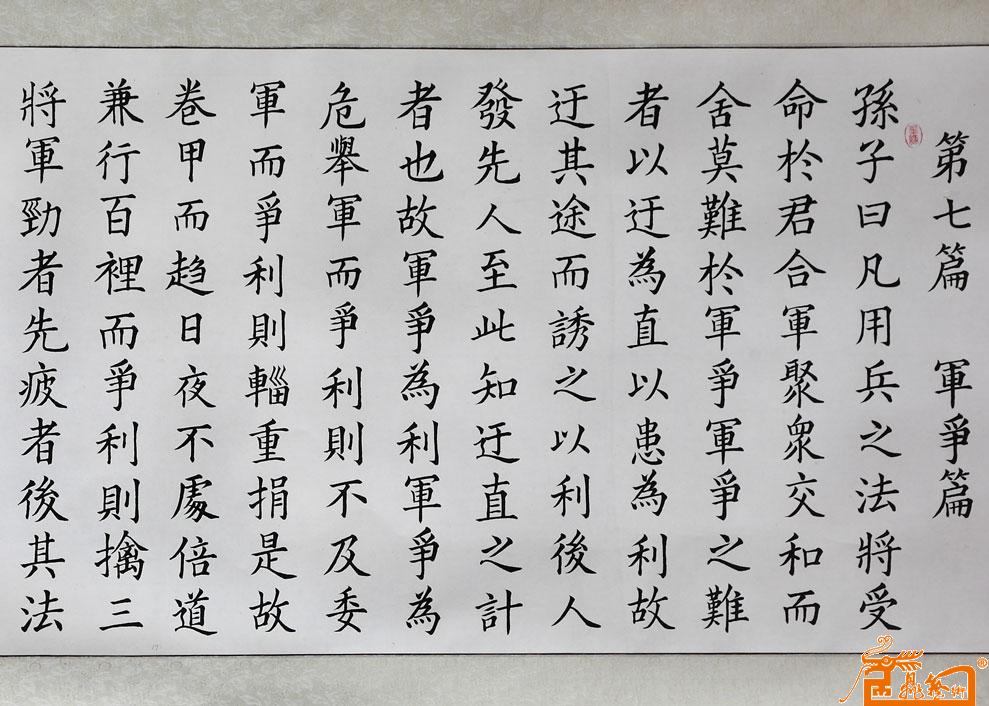 第七篇 軍爭篇
孫子曰凡用兵之法將受
命於君合軍聚衆交和而
舍莫難於軍爭軍爭之難
者以迂為直以患為利故
迂其途而誘之以利後人
發先人至此知迂直之計
者也故軍爭為利軍爭為
危舉軍而爭利則不及委
軍而爭利則輜重捐是故
卷甲而趋日夜不處倍道
兼行百裡而爭利則擒三
將軍勁者先疲者後其法